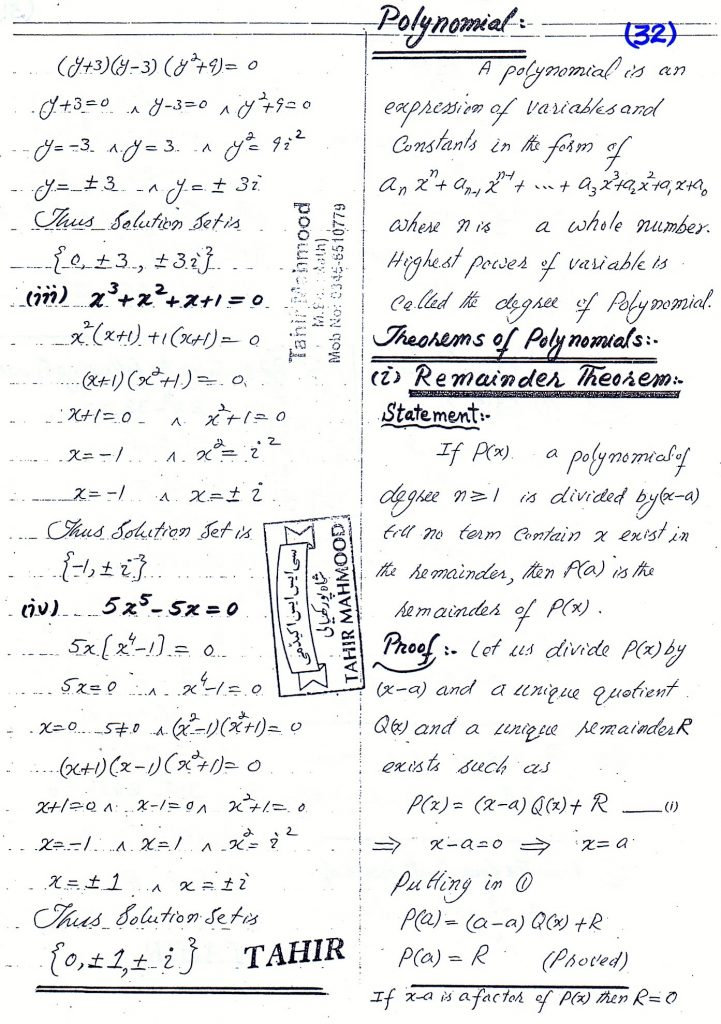 (y+3)(y-3)(y²+9)= 0
y+3=0 ∧ y-3=0 ∧ y²+9=0
y=-3 ∧ y=3 ∧ y²= 9i²
y= ±3 ∧ y= ± 3i
Thus Solution Set is
{0, ±3, ±3i}
(iii) x³+x²+x+1=0
x²(x+1)+1(x+1)= 0
(x+1)(x²+1)= 0
x+1=0 ∧ x²+1=0
x=-1 ∧ x²= i²
x=-1 ∧ x=± i
Thus Solution Set is
{-1, ± i}
(iv) 5x⁵-5x=0
5x[x⁴-1] = 0
5x=0 ∧ x⁴-1=0
x=0 5≠0 ∧ (x²-1)(x²+1)= 0
(x+1)(x-1)(x²+1)= 0
x+1=0 ∧ x-1=0 ∧ x²+1=0
x=-1 ∧ x=1 ∧ x²= i²
x= ±1 ∧ x= ±i
Thus Solution Set is
{0, ±1, ± i}
TAHIR
Tahir Mahmood
Mob No: 0345-6510779
سی ایس ایس اکیڈمی
TAHIR MAHMOOD
Polynomial:-
(32)
A polynomial is an
expression of variables and
Constants in the form of
aₙxⁿ+aₙ₋₁xⁿ⁻¹+ ... + a₃x³+a₂x²+a₁x+a₀
where n is a whole number.
Highest power of variable is
Called the degree of Polynomial.
Theorems of Polynomials:-
(i) Remainder Theorem:-
Statement:-
If P(x) a polynomial of
degree n≥1 is divided by (x-a)
till no term Contain x exist in
the remainder, then P(a) is the
remainder of P(x).
Proof:- Let us divide P(x) by
(x-a) and a unique quotient
Q(x) and a unique remainder R
exists such as
P(x)= (x-a)Q(x)+ R ——(1)
⇒ x-a=0 ⇒ x=a
Putting in ①
P(a)= (a-a)Q(x)+R
P(a)= R (Proved)
If x-a is a factor of P(x) then R=0